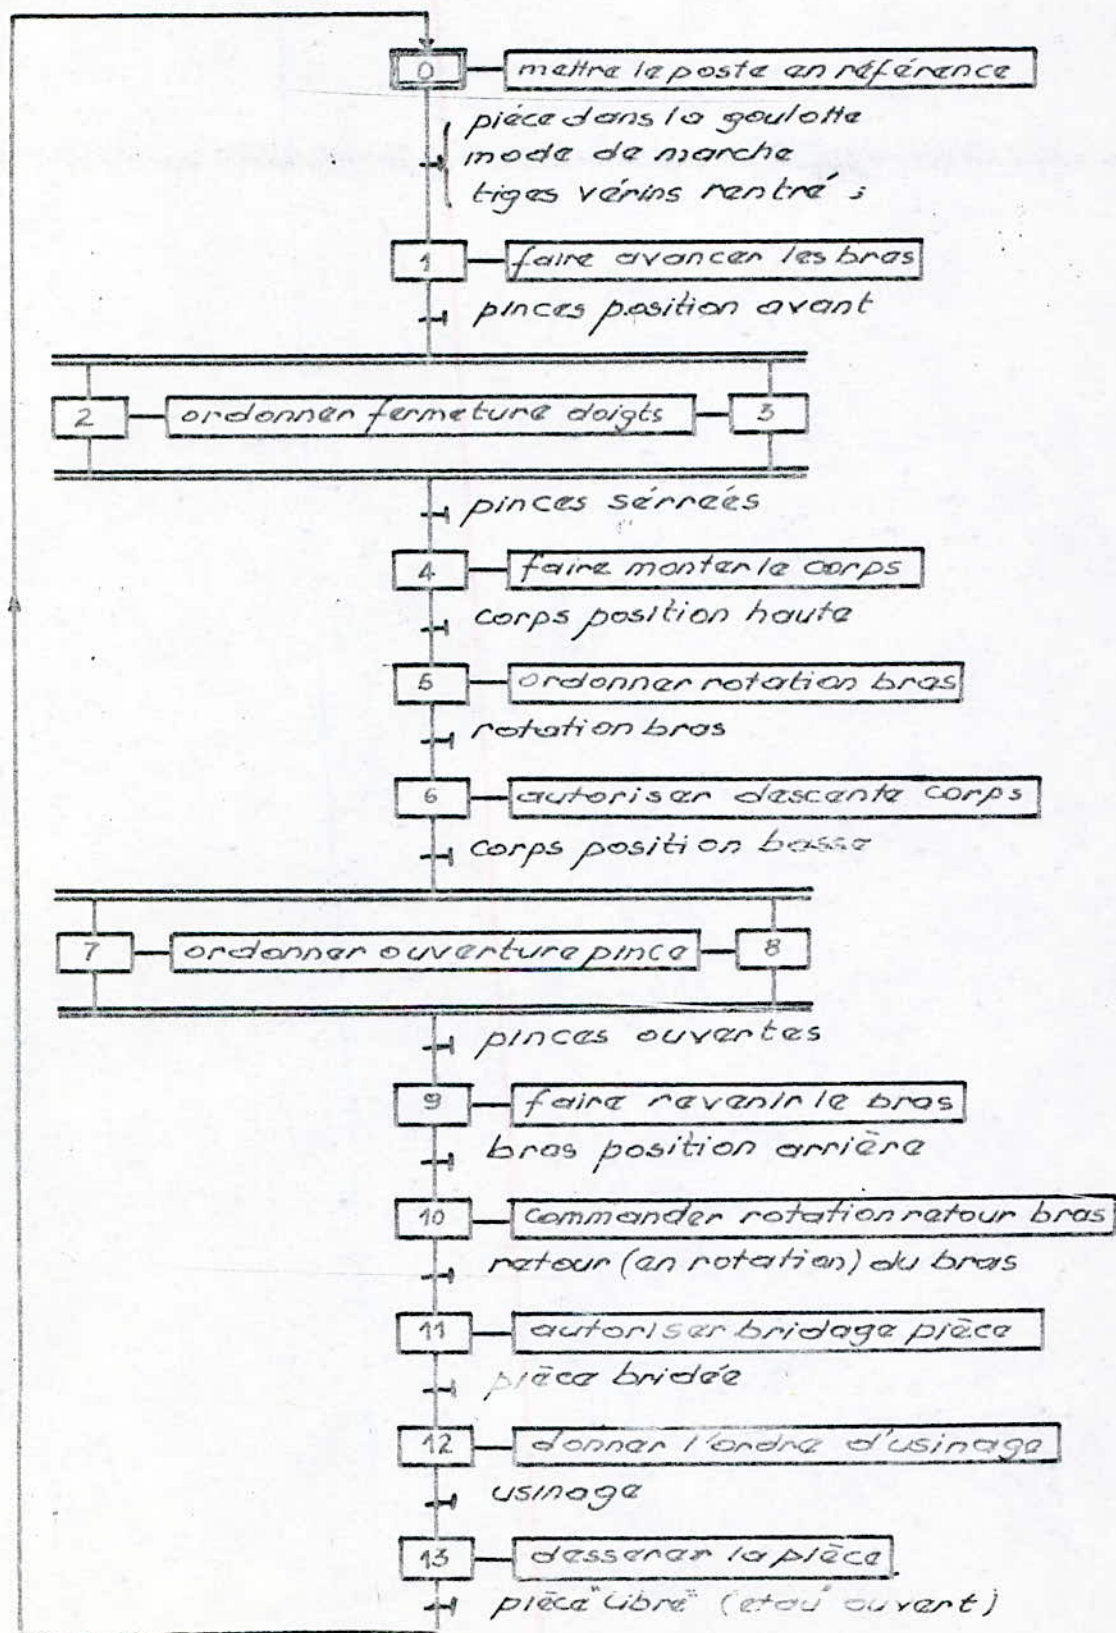 0 mettre le poste en référence
pièce dans la goulotte
mode de marche
tiges vérins rentré s
1 faire avancer les bras
pinces position avant
2 ordonner fermeture doigts 3
pinces sérreés
4 faire monter le corps
corps position haute
5 ordonner rotation bras
rotation bras
6 autoriser descente corps
corps position basse
7 ordonner ouverture pince 8
pinces ouvertes
9 faire revenir le bras
bras position arrière
10 commander rotation retour bras
retour (en rotation) du bras
11 autoriser bridage pièce
pièce bridée
12 donner l'ordre d'usinage
usinage
13 desserer la pièce
pièce "libre" (etau ouvert)